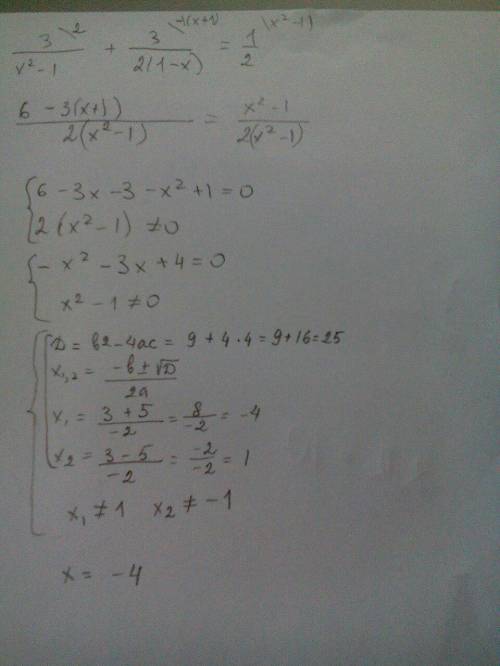 3\2 / x² - 1 + 3\-1(x+1) / 2(1-x) = 1\x²-1) / 2
6 - 3(x+1) / 2(x² - 1) = x² - 1 / 2(x² - 1)
{ 6 - 3x - 3 - x² + 1 = 0
2(x² - 1) ≠ 0
{ - x² - 3x + 4 = 0
x² - 1 ≠ 0
D = b2 - 4ac = 9 + 4·4 = 9 + 16 = 25
x₁,₂ = -b ± √D / 2a
x₁ = 3 + 5 / -2 = 8 / -2 = -4
x₂ = 3 - 5 / -2 = -2 / -2 = 1
x₁ ≠ 1 x₂ ≠ -1
x = -4